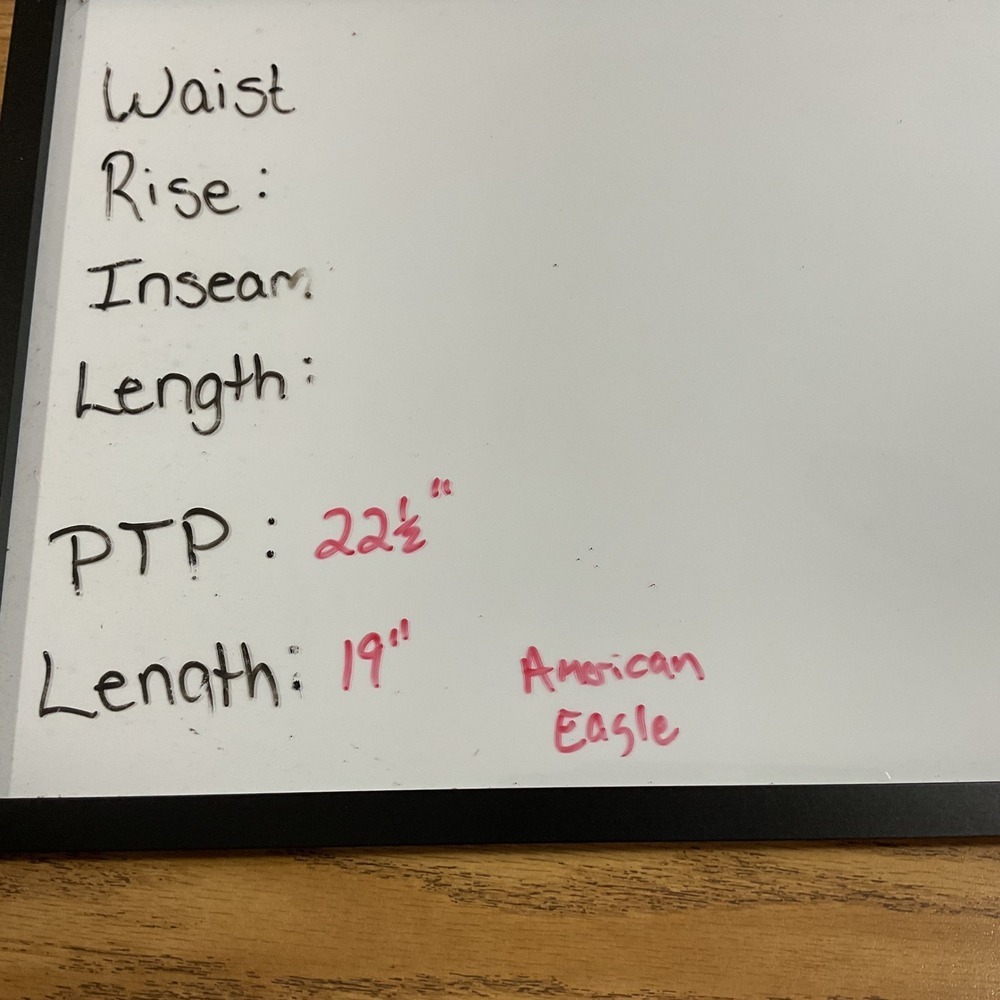 Waist
Rise:
Inseam
Length:
PTP: 22½"
Length: 19"
American
Eagle